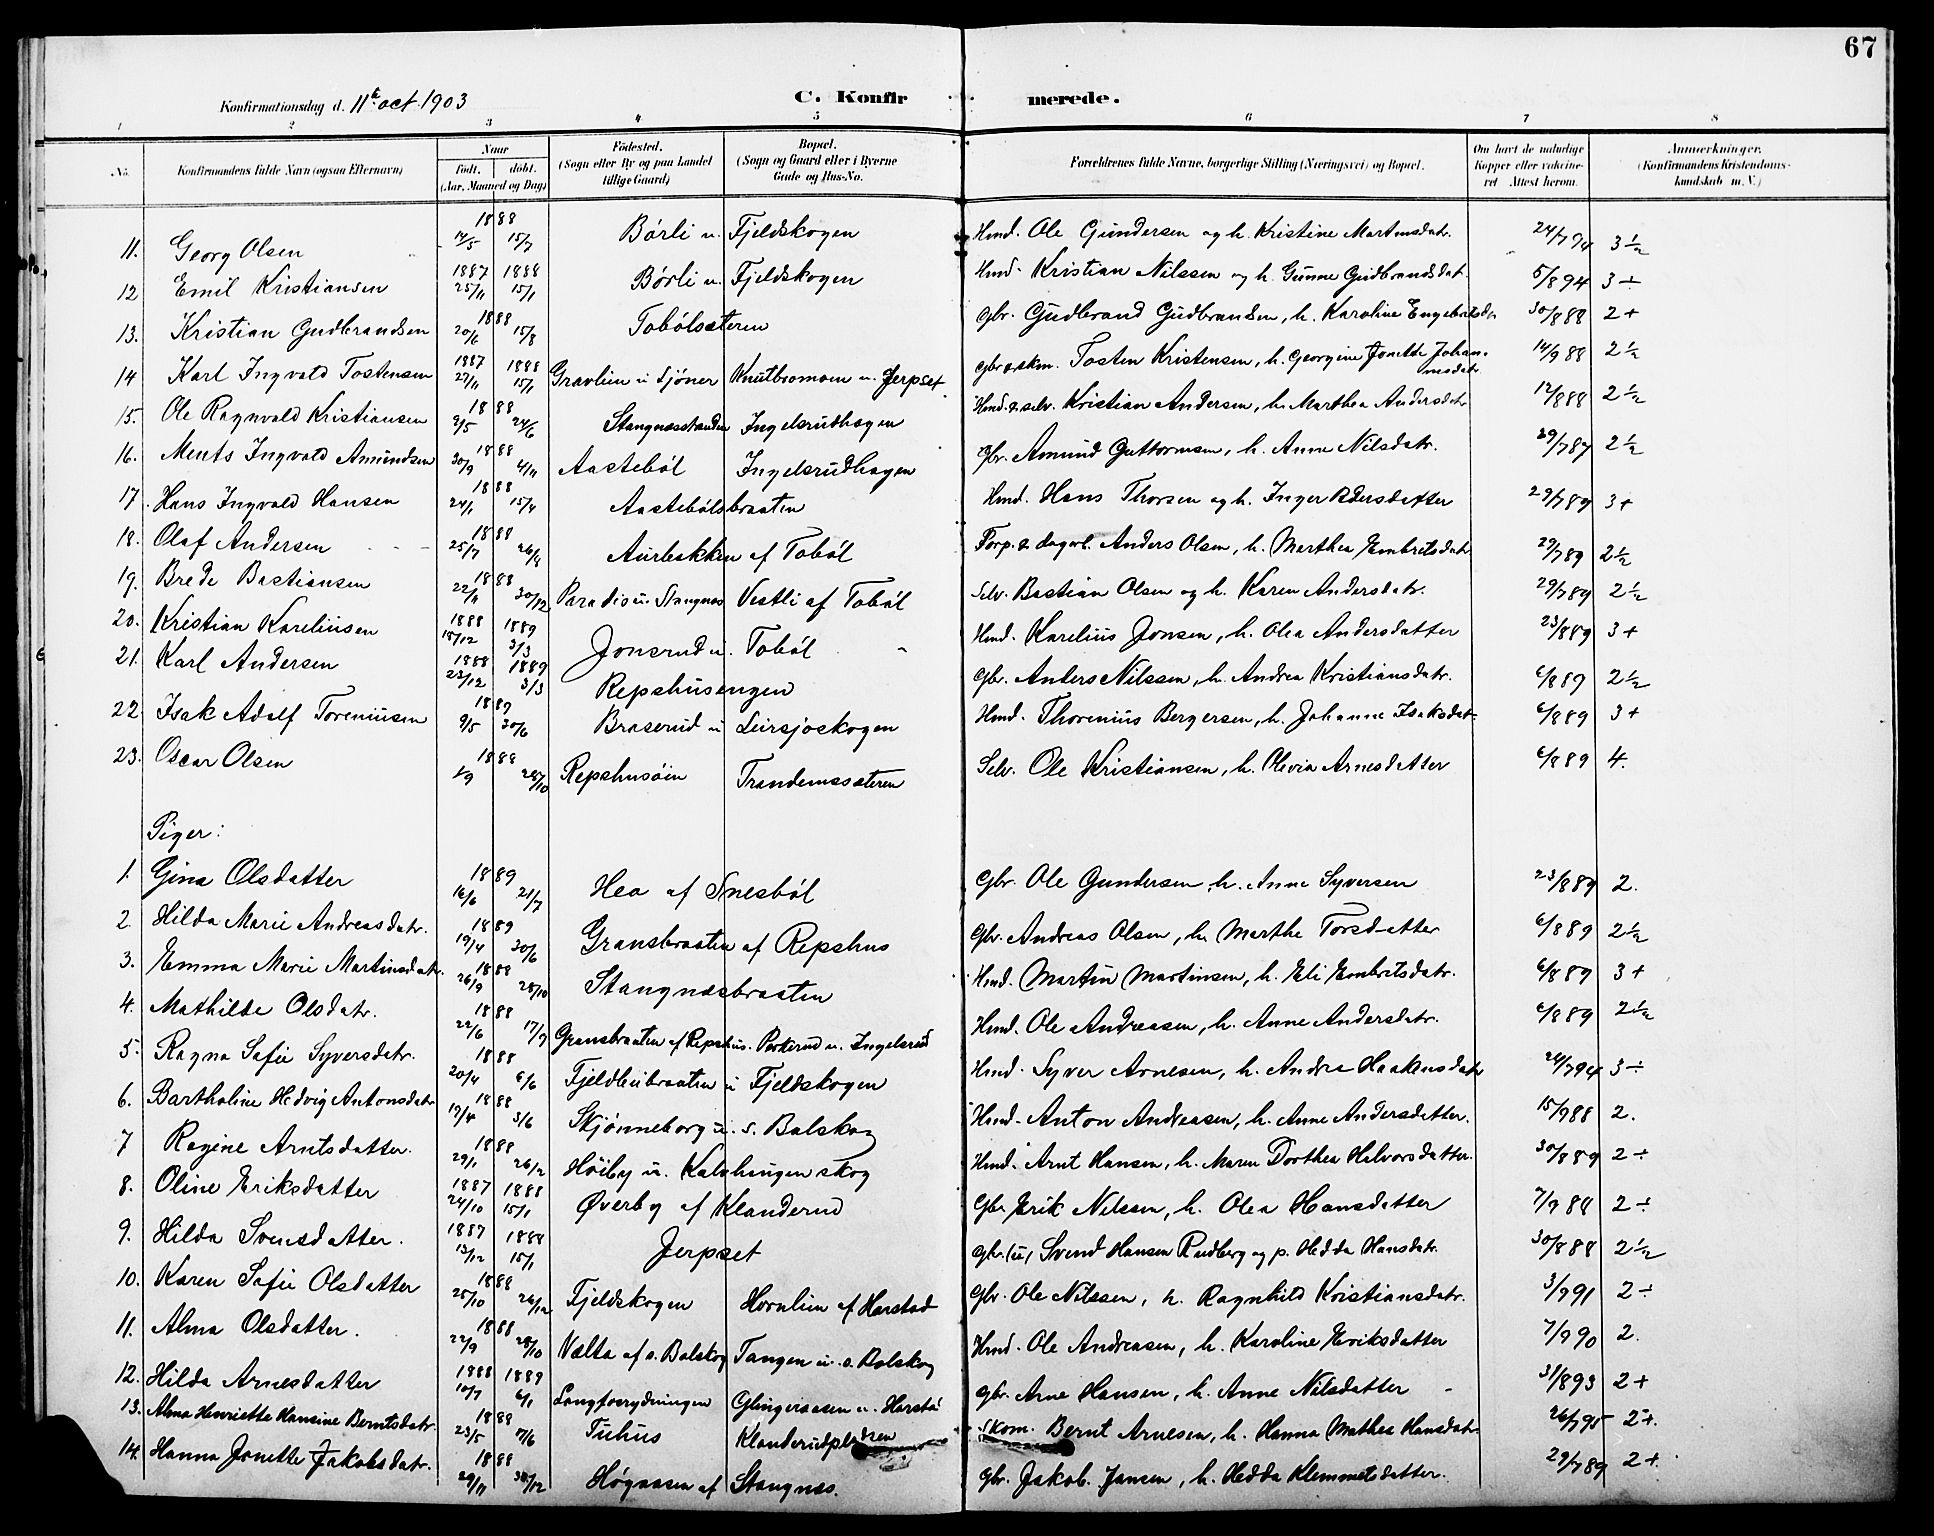 67
Konfirmationsdag d. 11te oct. 1903
C. Konfir merede.
1 2 3 4 5 6 7 8
No. Konfirmandens fulde Navn (ogsaa Efternavn) Naar født. døbt. (Aar, Maaned og Dag) Fødested. (Sogn eller By og paa Landet tillige Gaard) Bopæl. (Sogn og Gaard eller i Byerne Gade og Hus-No. Forældrenes fulde Navne, borgerlige Stilling (Næringsvei) og Bopæl. Om havt de naturlige Kopper eller vaccineret. Attest herom. Anmærkninger. (Konfirmandens Kristendomskundskab m. V.)
11. Georg Olsen 1888 14/5 15/7 Börli u. Fjeldskogen Hmd. Ole Gundersen og h. Kristine Martinsdatr. 24/7 94 3 1/2
12 Emil Kristiansen 1887 25/11 1888 15/1 Börli u. Fjeldskogen Hmd. Kristian Nilssen og h. Gunne Gudbrandsdat. 5/8 94 3 ÷
13. Kristian Gudbrandsen 1888 20/6 15/8 Tobölsæteren gbr. Gudbrand Gudbrandsen, h. Karoline Engebretsdr 30/8 88 2 +
14 Karl Ingvald Tostensen 1887 27/11 1888 15/1 Gravlien u Sjöner Knutbromoen u. Jerpset gbr. o. skm. Tosten Kristensen, h. Georgine Jonette Johannesdatr 14/9 88 2 1/2
15. Ole Ragnvald Kristiansen 1888 2/5 24/6 Stangnesstranden Ingelsrudhagen Hmd. & selv. Kristian Andersen, h. Marthea Andersdatr 12/8 88 2 1/2
16. Ments Ingvald Amundsen 1888 30/9 4/11 Aasteböl Ingelsrudhagen gbr. Amund Guttormsen, h. Anne Nilsdatr. 29/7 87 2 1/2
17. Hans Ingvald Hansen 1888 24/1 15/4 Aastebölsbraaten Hmd. Hans Thorsen og h. Inger Pedersdatter 29/7 89 3 +
18. Olaf Andersen 1888 25/7 26/8 Aurbakken af Toböl Forp. & dagarb. Anders Olsen, h. Marthea Embretsdatr 29/7 89 2 1/2
19. Brede Bastiansen 1888 22/11 30/12 Paradis u. Stangnes Vestli af Toböl Selv. Bastian Olsen og h. Karen Andersdatr. 29/7 89 2 1/2
20. Kristian Kareliusen 1888 15/12 1889 3/3 Jonsrud u. Toböl Hmd. Karelius Jonsen, h. Olea Andersdatter 23/8 89 3 +
21. Karl Andersen 1888 23/12 1889 3/3 Repshusengen gbr. Anders Nilssen, h. Andrea Kristiansdatr. 6/8 89 2 1/2
22. Isak Adolf Toreniusen 1889 9/5 30/6 Braserud u Leirsjoskogen Hmd. Thorenius Bergersen, h. Johanne Isaksdatr 6/8 89 3 +
23. Oscar Olsen 1888 1/9 28/10 Repshusöien Trandemsæteren Selv. Ole Kristiansen, h. Olivia Arnesdatter 6/8 89 4.
Piger:
1. Gina Olsdatter 1889 16/6 21/7 Hea af Snesböl Gbr. Ole Gundersen, h. Anne Syversen 23/8 89 2.
2. Hilda Marie Andreasdatr. 1889 19/4 30/6 Gransbraaten af Repshus Gbr. Andreas Olsen, h. Marthe Torsdatter 6/8 89 2 1/2
3. Emma Marie Martinsdatr. 1888 26/9 28/10 Stangnæsbraaten Hmd. Martin Martinsen, h. Eli Embretsdatr. 6/8 89 3 +
4. Mathilde Olsdatr. 1888 22/6 17/7 Gransbraaten af Repshus. Perkerud u. Ingelsrud Hmd. Ole Andreasen, h. Anne Andersdatr. 6/8 89 2 1/2
5. Ragna Sofie Syversdatr. 1888 20/4 6/6 Fjeldheibraaten u Fjeldskogen Hmd. Syver Arnesen, h. Andrea Haakensdatr 24/7 94 3 ÷
6. Bartholine Hedvig Antonsdatr 1888 17/4 3/6 Skjönneborg u. s. Bolskog Hmd. Anton Andreasen, h. Anne Andersdatter. 15/9 88 2.
7 Regine Arntsdatter. 1888 29/1 26/2 Höiby u. Kalvhaugenskog Hmd. Arnt Hansen, h. Maren Dorthea Halvorsdatter. 30/8 89 2 ÷
8. Oline Eriksdatter 1887 24/10 1888 15/1 Øverby af Klanderud Gbr. Erik Nilssen, h. Olea Hansdatter 7/9 88 2 ÷
9. Hilda Svensdatter. 1887 13/12 1888 15/1 Jerpset gbr. (u), Svend Hansen Rudberg og p. Hedda Hansdatr. 30/8 88 2 1/2
10. Karen Sofie Olsdatter 1888 25/10 26/12 Fjeldskogen Hornlien af Harstad Gbr. Ole Nilssen, h. Ragnhild Kristiansdatr. 3/7 91 2 ÷
11. Alma Olsdatter. 1888 22/9 28/10 Vælta af s. Bolskog Tangen u. s. Bolskog Hmd. Ole Andreasen, h. Karoline Eriksdatter 7/9 90 2.
12. Hilda Arnesdatter 1888 10/7 1889 6/1 Langforrydningen Glingeraasen u. Harstad gbr. Arne Hansen, h. Anne Nilsdatter 31/8 93 2 +
13. Alma Henriette Hansine Berntsdatr. 1888 23/5 7/6 Tuhus Klanderudpladsen Skom. Bernt Arnesen, h. Hanna Mathea Hansdatr. 26/7 95 2 +.
14. Hanna Jonette Jakobsdatr. 1888 29/11 30/12 Högaasen af Stangnæs. gbr. Jakob Jansen, h. Hedda Klemmetsdatter. 29/7 89 2 +.